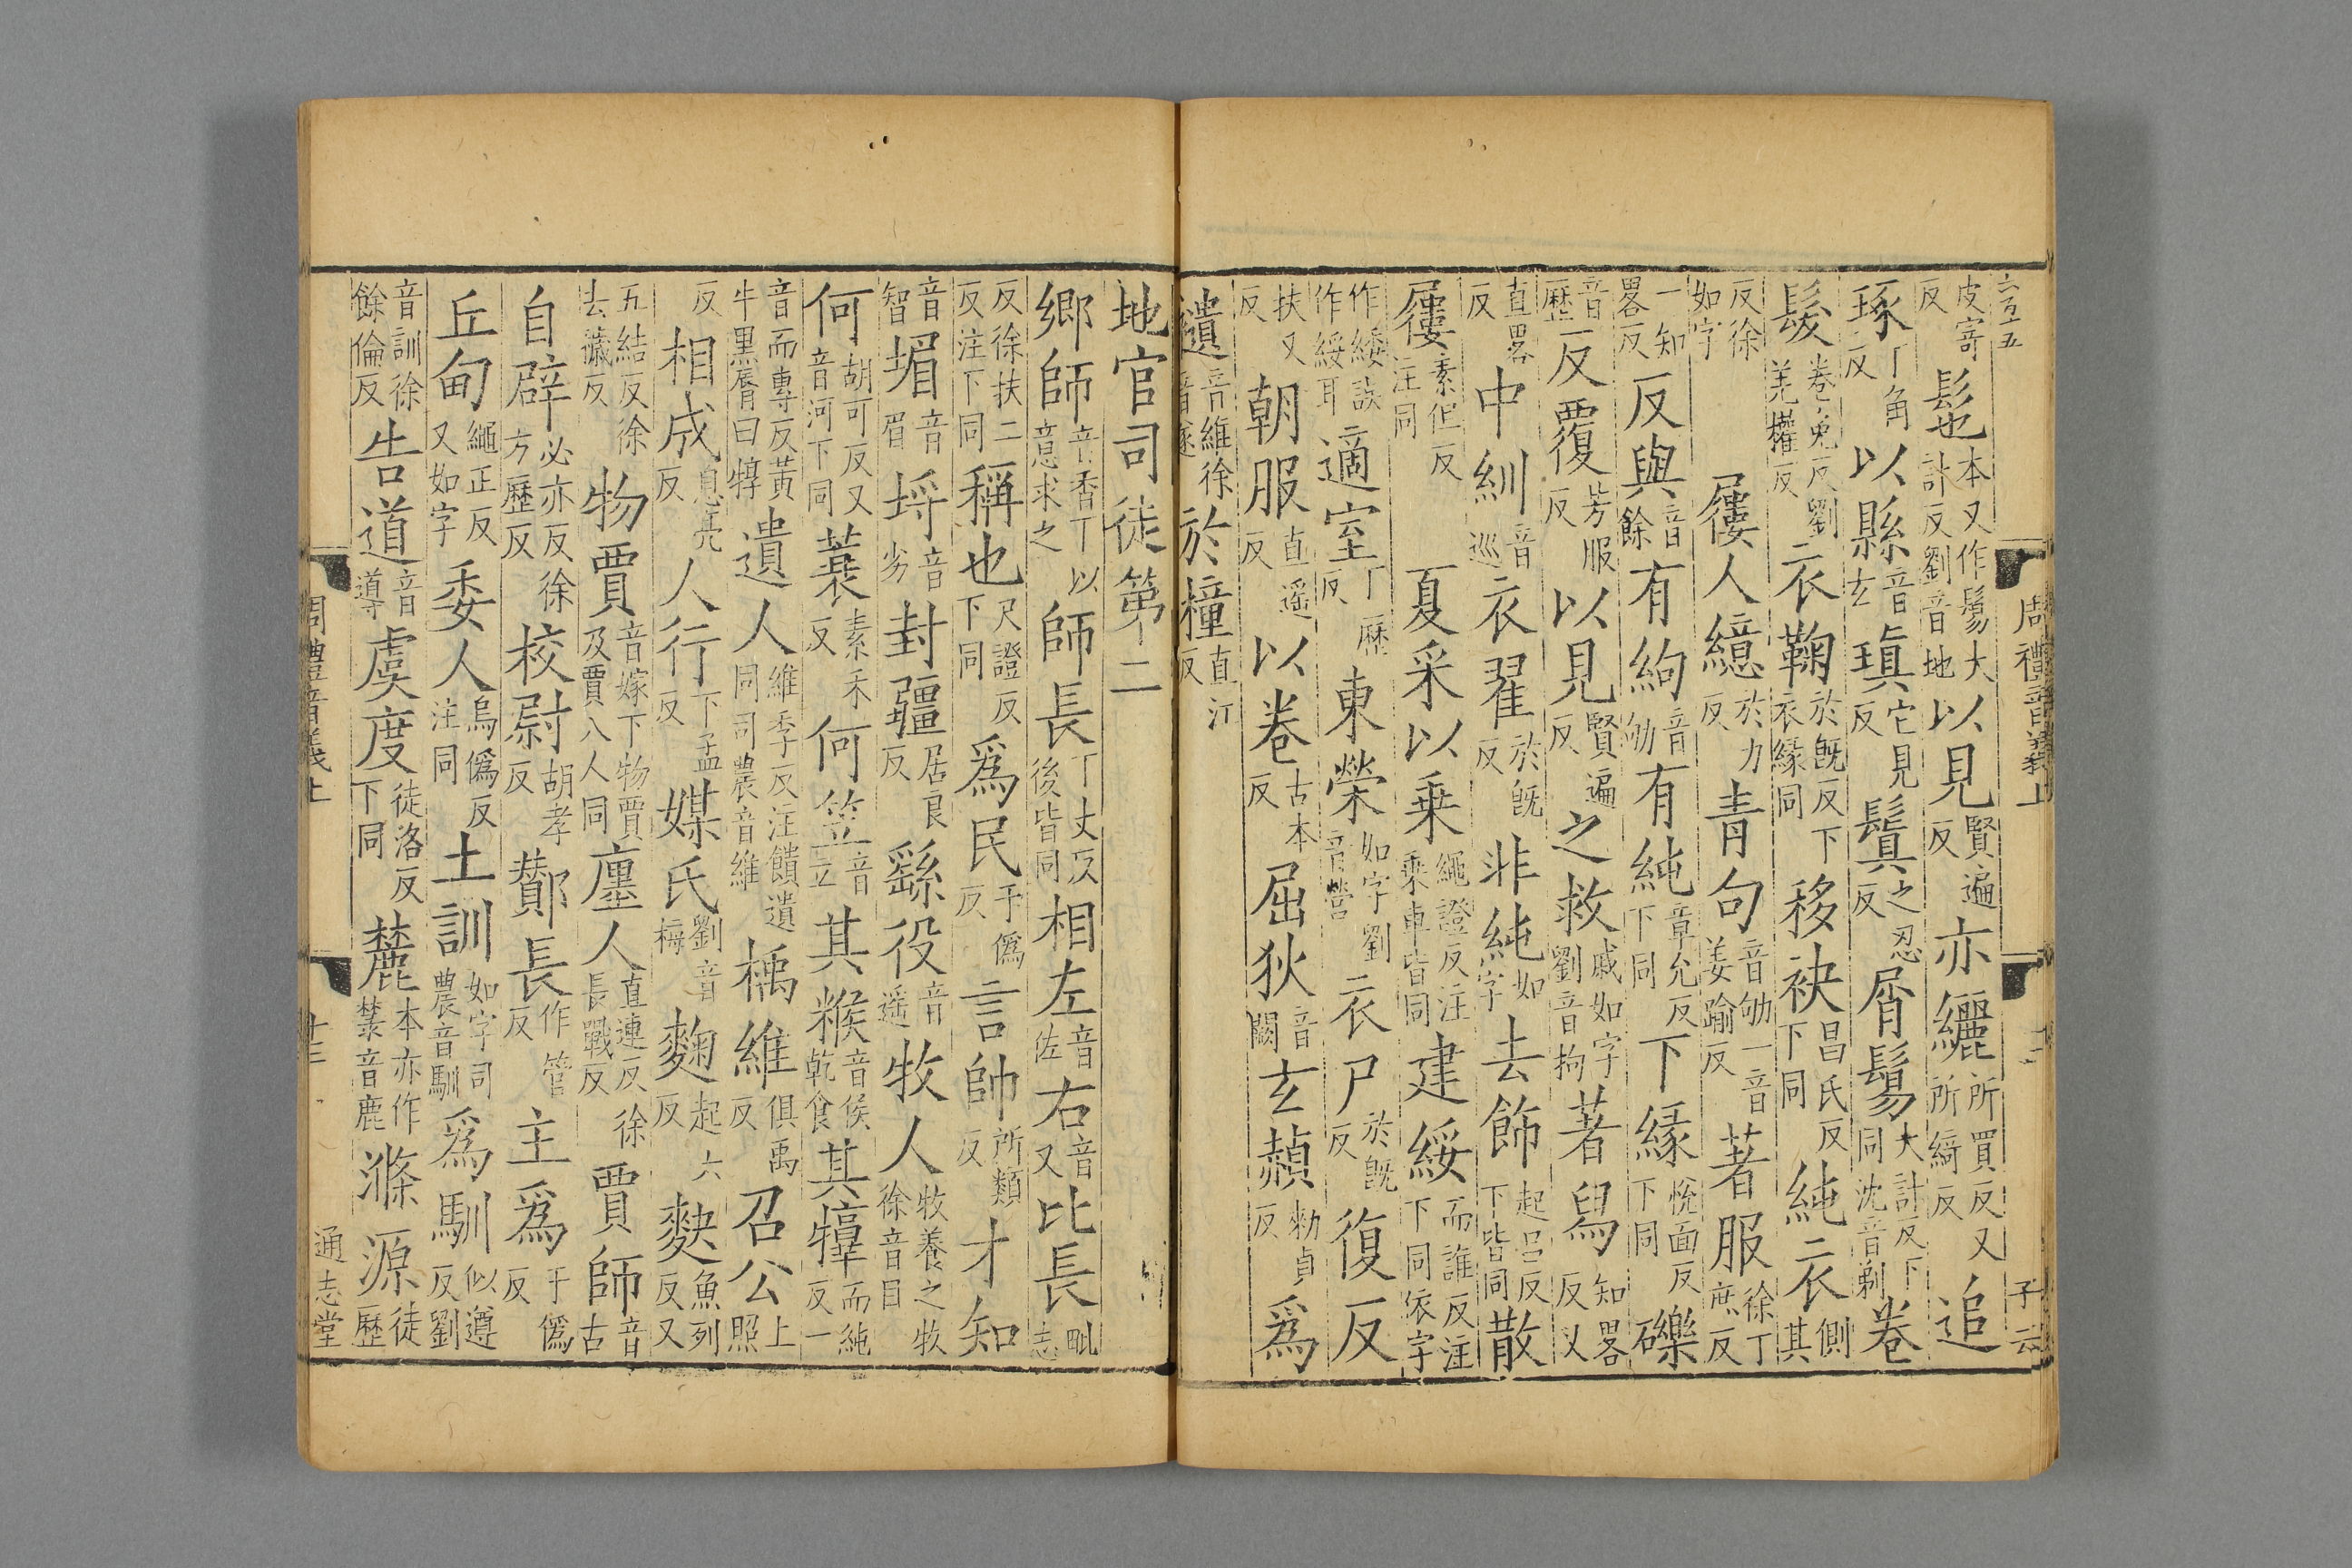 六百五
周禮音義上
子云
皮寄反髢也本又作鬄大計反劉音地以見賢遍反亦纚所買反又所綺反追
琢丁角反以縣音玄瑱它見反鬒之忍反屑鬄大計反下同沈音剃卷
髮卷勉反劉羌權反衣鞠於旣反下衣緣同移袂昌氏反下同純衣側其
反徐如字屨人繶於力反青句音劬一音姜踰反著服徐丁庶反
一知畧反反與音餘有絇音劬有純章允反下同下緣悅面反下同礫
音歷反覆芳服反以見賢遍反之救戚如字劉音拘著舄知畧反又
直畧反中紃音巡衣翟於旣反非純如字去飾起呂反下皆同散
屨素但反注同夏采以乗繩證反注乗車皆同建綏而誰反注下同依字
作緌誤作綏耳適室丁歷反東榮如字劉音營衣尸於旣反復反
扶又反朝服直遥反以卷古本反屈狄音闕玄赬勑貞反爲
繾音維徐音遂於橦直江反
地官司徒第二
鄉師音香丁以意求之師長丁丈反後皆同相左音佐右音又比長毗志
反徐扶二反注下同稱也尺證反下同爲民于僞反言帥所類反才知
音智堳音眉埒音劣封疆居良反繇役音遥牧人牧養之牧徐音目
何胡可反又音河下同蓑素禾反何笠音立其糇音候乾食其犉而純反一
音而專反黃牛黑脣曰犉遺人維季反注饋遺同司農音維楀維俱禹反召公上照
反相成息亮反人行下孟反媒氏劉音梅麴起六反麩魚列反又
五結反徐去穢反物賈音嫁下物賈及賈八人同廛人直連反徐長戰反賈師音古
自辟必亦反徐方歷反校尉胡孝反鄼長作管反主爲于僞反
丘甸繩正反又如字委人烏僞反注同土訓如字司農音馴爲馴似遵反劉
音訓徐餘倫反告道音導虞度徒洛反下同麓本亦作禁音鹿滌源徒歷
周禮音義上
十三
通志堂